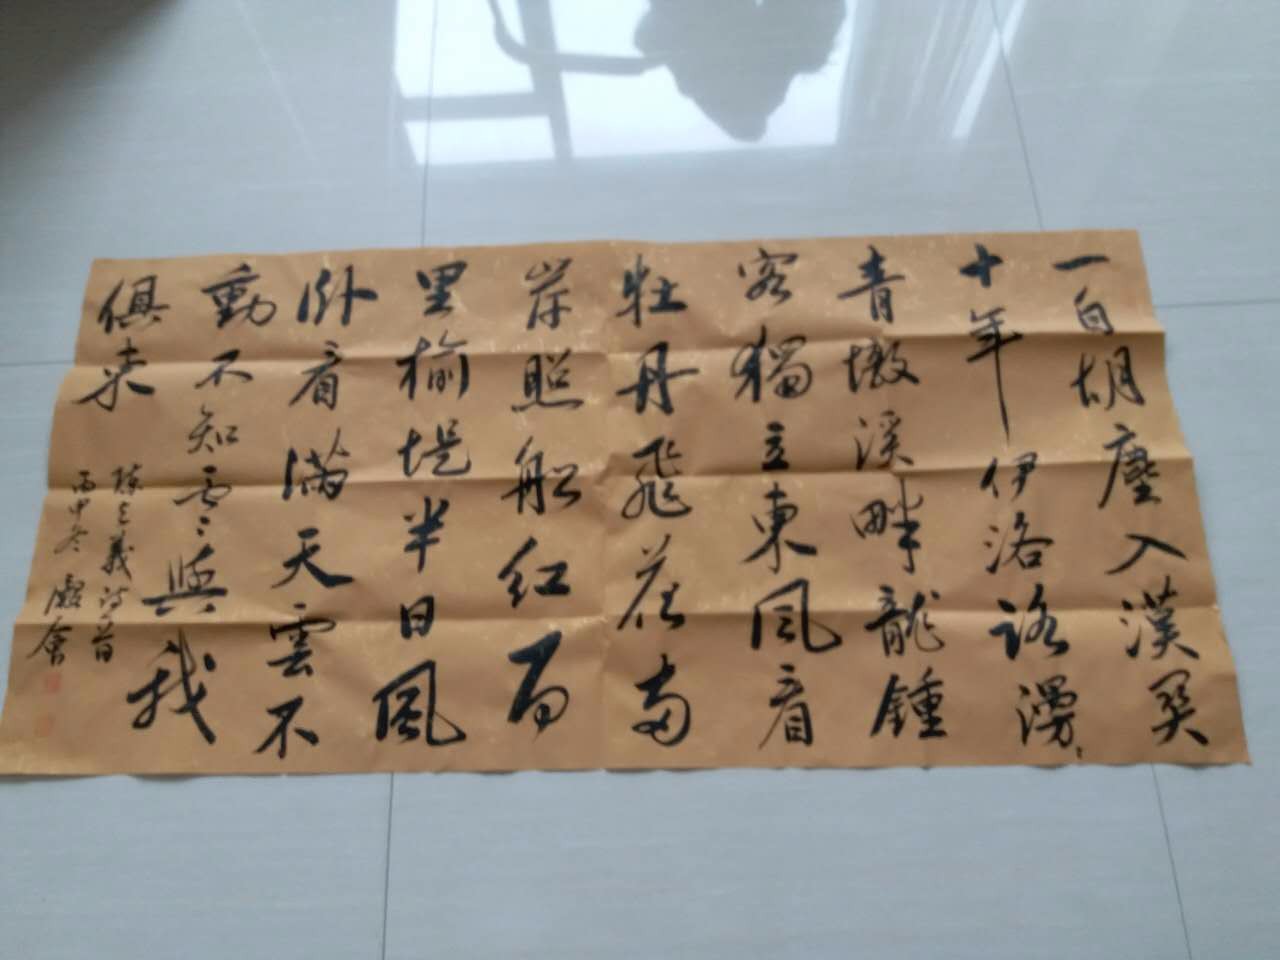 一自胡塵入漢関
十年伊洛路漫〻
青墩溪畔龍鍾
客獨立東風看
牡丹飛花兩
岸照船紅百
里榆堤半日風
卧看滿天雲不
動不知雲〻與我
俱東
陳与義詩二首
丙申冬